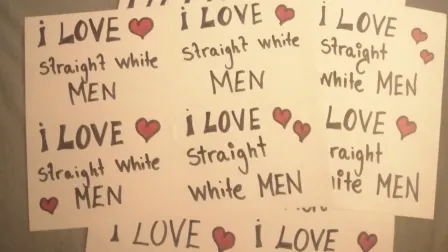 i LOVE
straight white
MEN
i LOVE
straight white
MEN
i LOVE
straight
white MEN
i LOVE
straight white
MEN
i LOVE
straight
white MEN
LOVE
raight
MEN
i LOVE
i LOVE